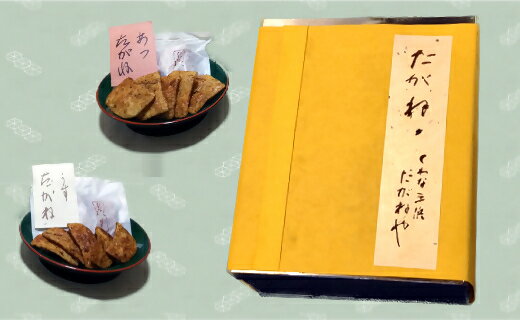 あつ
たがね
うす
たがね
たがね
くわな三浜
たがねや